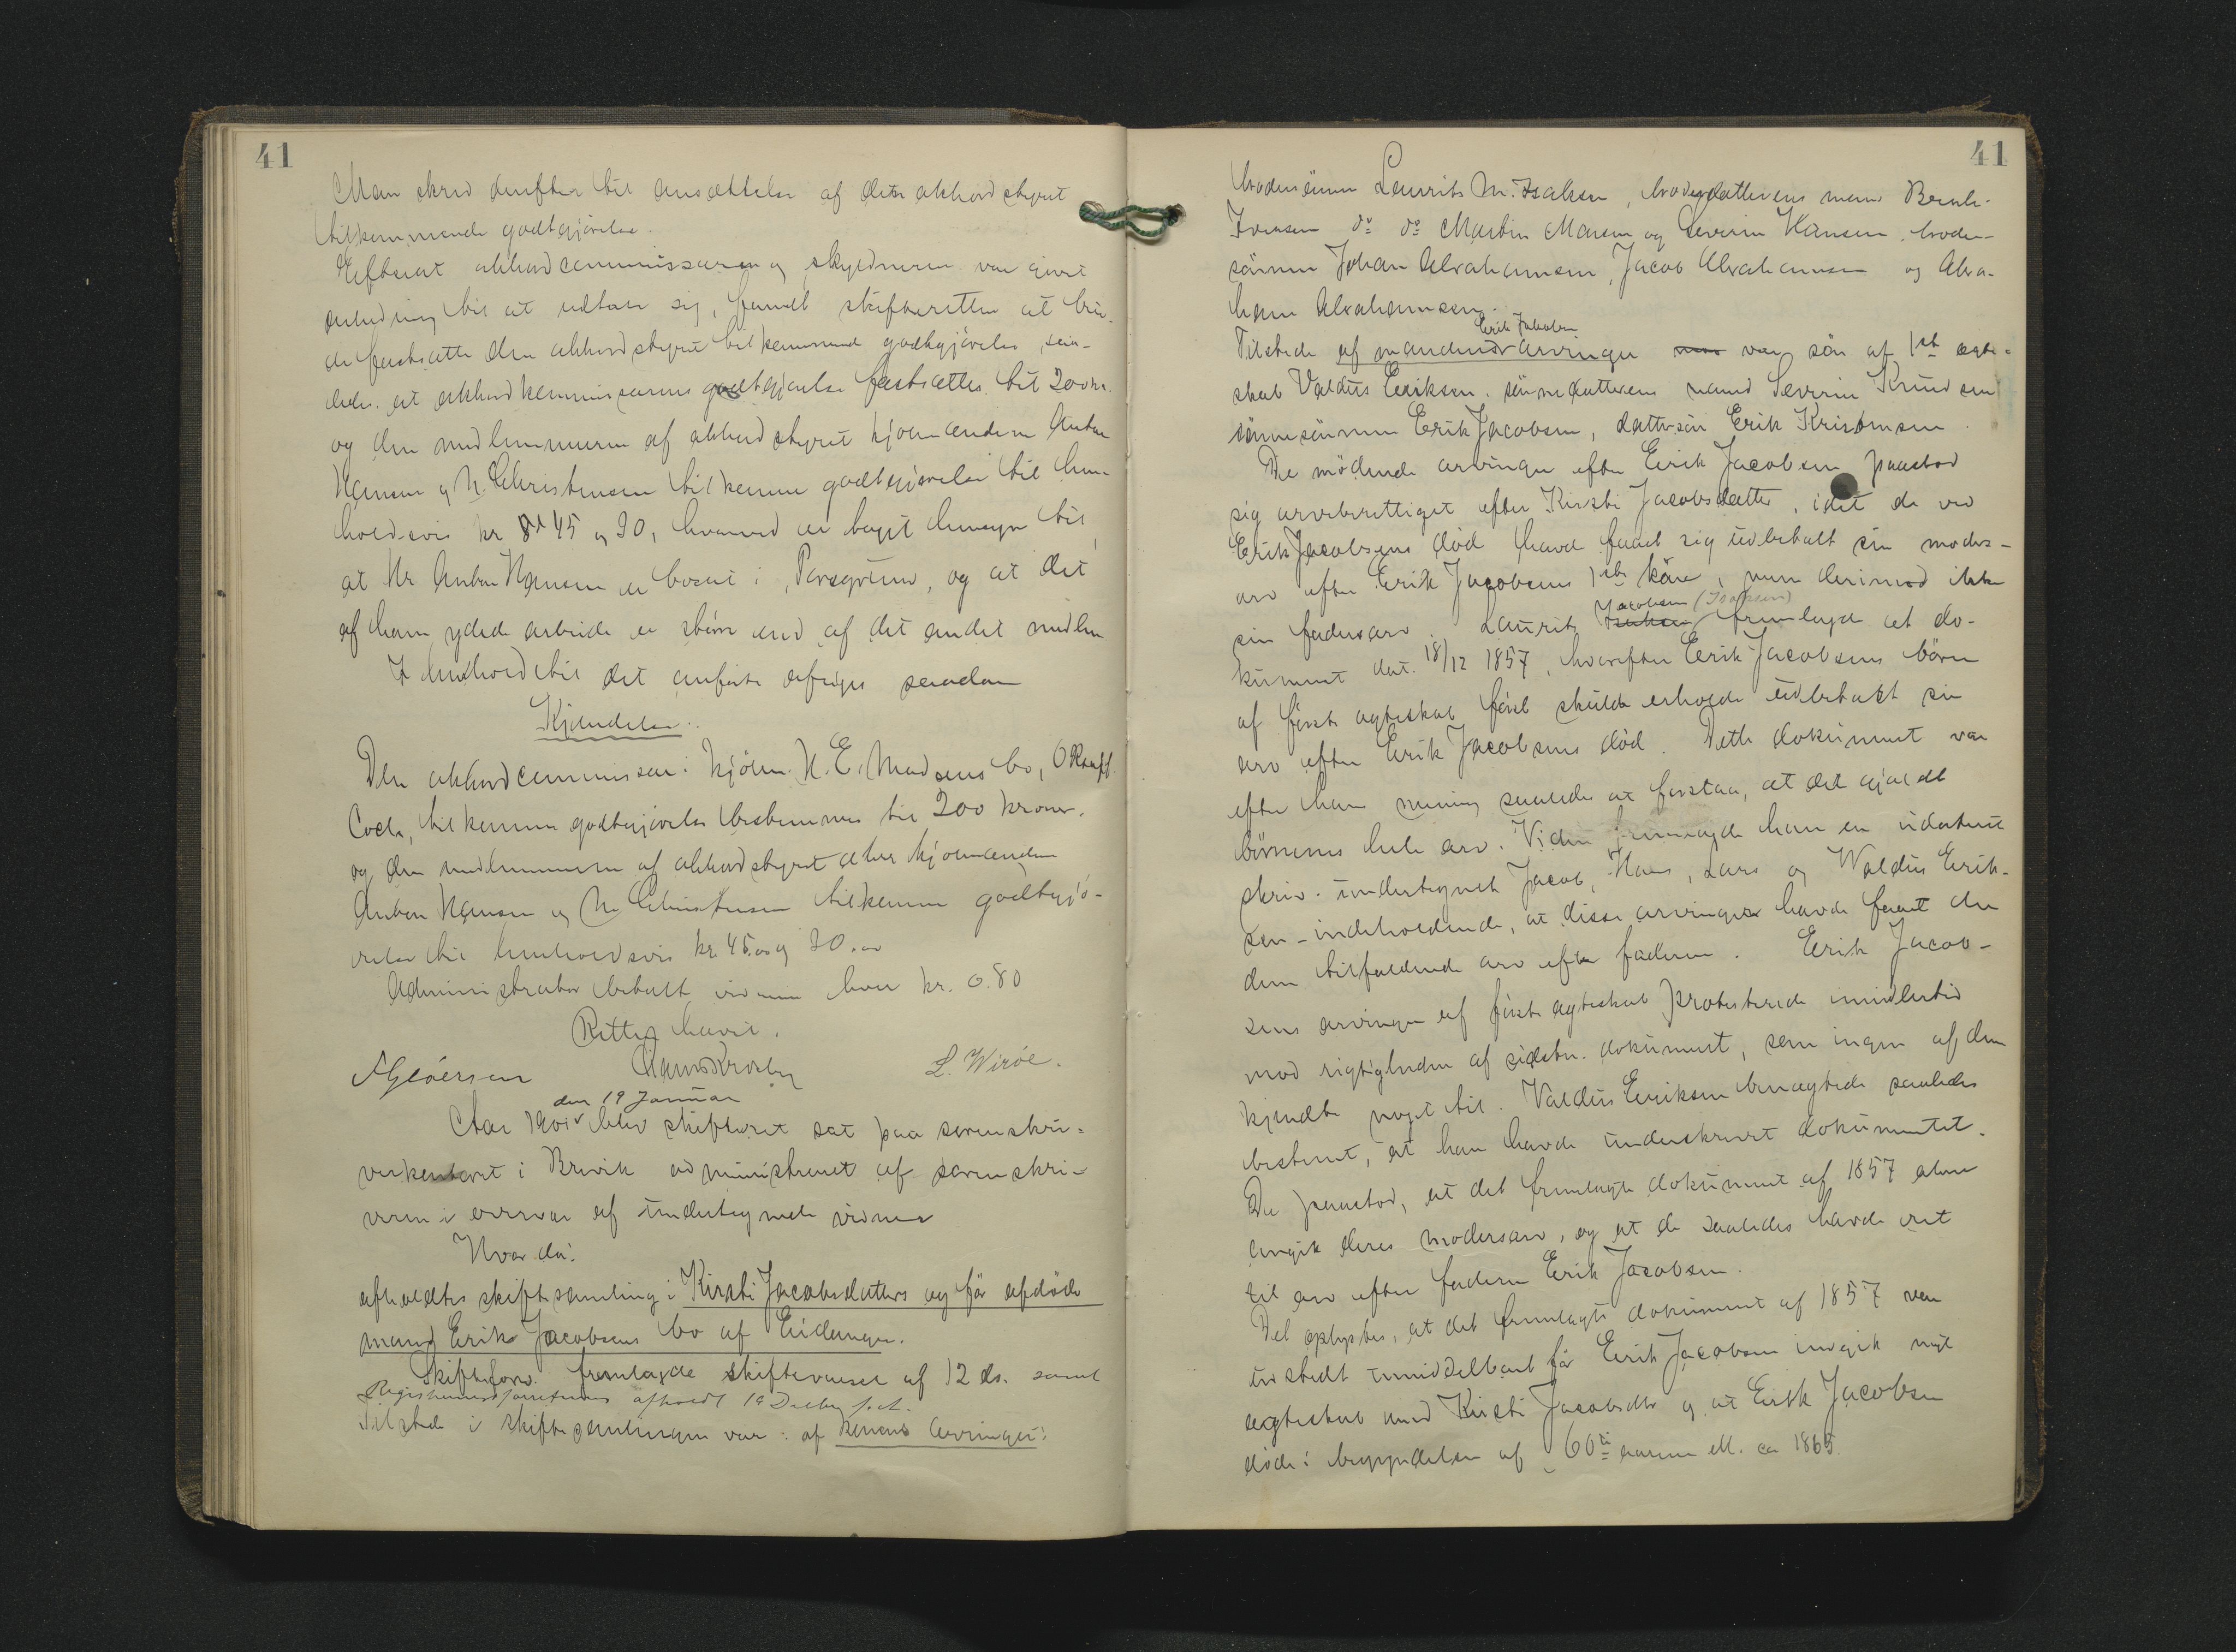 41
Man skred derefter til ansættelse af dette akkordstyret
tilkommende godtgjörelse.
Efterat akkordcommissæren og skyldneren var givet
anledning til at udtale sig, fandt skifteretten at bur-
de fastsætte den akkordstyret tilkommende godtgjörelse saa-
ledes at akkordkommissærens godtgjörelse fastsættes til 200 kr.
og den medlemmerne af akkordstyret kjöbmændene Anton
Hansen og N. Christensen tilkomne godtgjörelse til hen-
holdsvis kr 45 og 30, hvorved er taget hensyn til
at Hr Anton Hansen er bosat i Porsgrund, og at det
af ham ydede arbeide er större end af det andet medlem
I henhold til det anförte afsiges saadan
Kjendelse.
Den akkordcommissær i kjöbm. H. E. Madsens bo, O Rsagf.
Coch, tilkomne godtgjörelse bestemmes til 200 kroner.
og den medlemmerne af akkordstyret kjöbmændene
Anton Hansen og N. Christensen tilkomne godtgjö-
relse til henholdsvis kr. 45.00 og 30.00
Administrator betalt vidnerne hver kr. 0.80
Retten hævet.
L. Wiröe.
den 19 Januar
Aar 1901 blev skifteret sat paa sorenskri-
verkontoret i Brevik administreret af sorenskri-
veren i overvær af undertegnede vidner
Hvor da:
afholdtes skiftesamling i Kirsti Jacobsdatters og för afdöde
mand Erik Jacobsens bo af Eidanger.
Skifteforv. fremlagde skiftevarsel af 12 ds. samt
Registreringsforretning afholdt 19 Decbr f. A.
Tilstede i skiftesamlingen var: af konens arvinger:
41
brodersönnen Laurits M. Isaksen, broderdatterens mand Bernh.
Iversen do do Martin Mansen og Severin Hansen, broder-
sönnen Johan Abrahamsen, Jacob Abrahamsen og Abra-
ham Abrahamsen.
Erik Jacobsen
Tilstede af mandens arvinger var sön af 1ste ægte-
skab Valdus Eriksen, sönnedatterens mand Severin Knudsen
sönnesönnen Erik Jacobsen, dattersön Erik Kristensen.
De mödende arvinger efter Erik Jacobsen paastod
sig arveberettiget efter Kirsti Jacobsdatter, idet de ved
Erik Jacobsens död havde faaet sig udbetalt sin moders-
arv efter Erik Jacobsens 1ste kone, men derimod ikke
Jacobsen (Isaksen)
sin fadersarv. Laurits Isaksen fremlagde et do-
kument dat. 18/12 1857, hvorefter Erik Jacobsens börn
af förste ægteskab först skulde erholde udbetalt sin
arv efter Erik Jacobsens död. Dette dokument var
efter hans mening saaledes at forstaa, at det gjaldt
börnenes hele arv. Videre fremlagde han en udateret
skriv. undertegnet Jacob, Hans, Lars og Waldus Erik-
sen – indeholdende, at disse arvinger havde faaet den
dem tilfaldende arv efter faderen. Erik Jacob-
sens arvinger af förste ægteskab protesterede imidlertid
mod rigtigheden af sidstn. dokument, som ingen af dem
kjendte noget til. Valdus Eriksen benægtede saaledes
bestemt, at han havde underskrevet dokumentet.
De paastod, at det fremlagte dokument af 1857 alene
angik deres modersarv, og at de saaledes havde ret
til arv efter faderen Erik Jacobsen.
Det oplystes, at det fremlagte dokument af 1857 var
udstedt umiddelbart för Erik Jacobsen indgik nyt
ægteskab med Kirsti Jacobsdtr og at Erik Jacobsen
döde i begyndelsen af 60ti aarene ell. ca 1865.